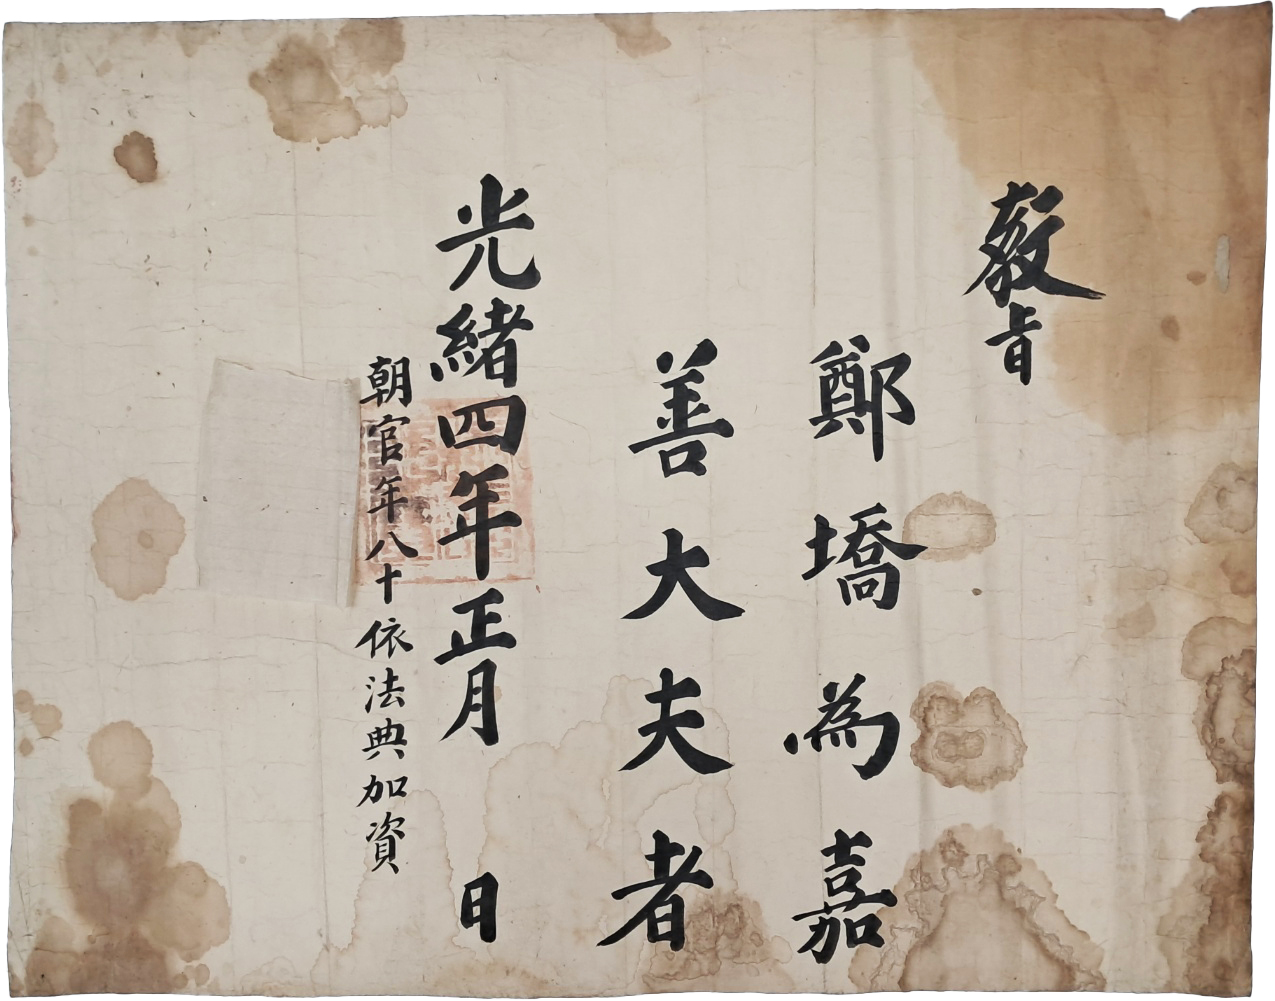 敎旨
鄭墧為嘉
善大夫者
光緖四年正月 日
朝官年八十依法典加資